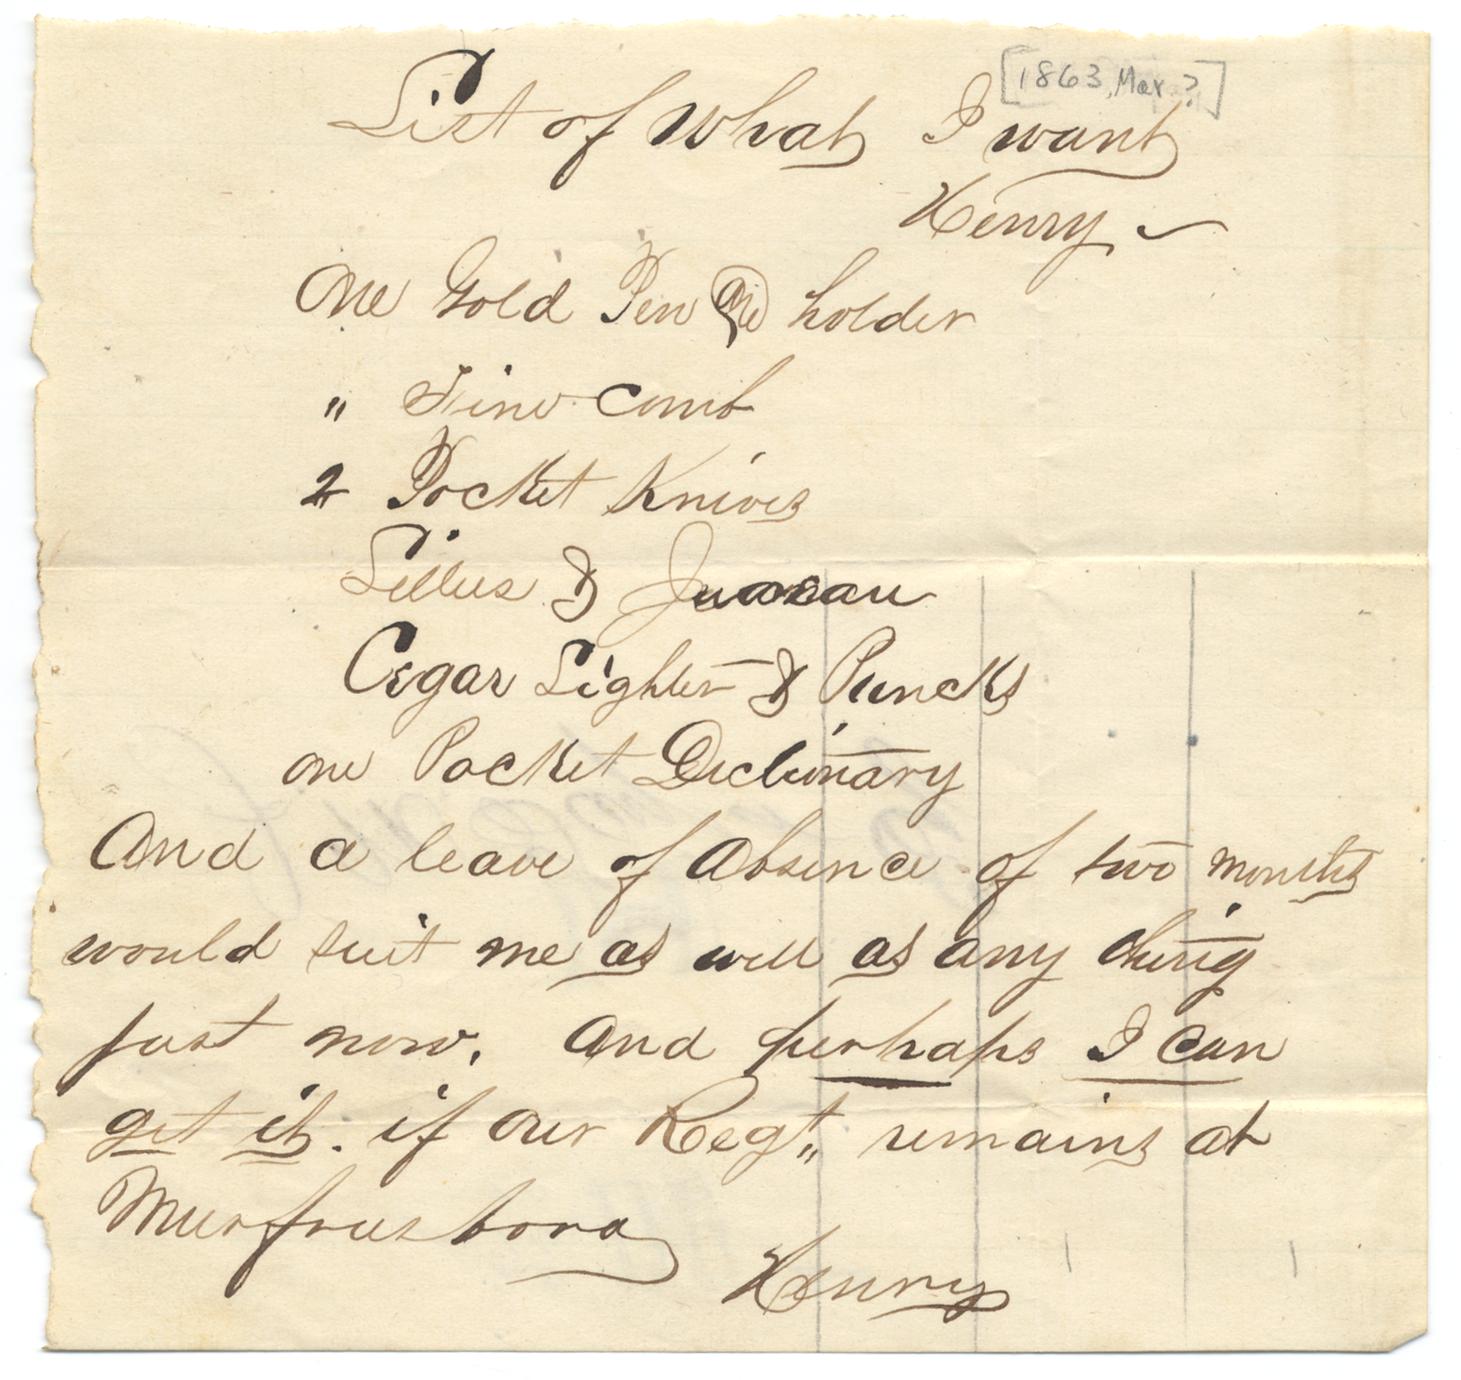 [1863, Mar?]
List of What I want
Henry
One Gold Pen holder
" Fine comb
2 Pocket Knives
Lillies &
Cegar Lighter & Puncks
one Pocket Dictionary
And a leave of Absence of two months
would suit me as well as any thing
just now. And perhaps I can
get it. if our Regt,, remains at
Murfreesboro
Henry